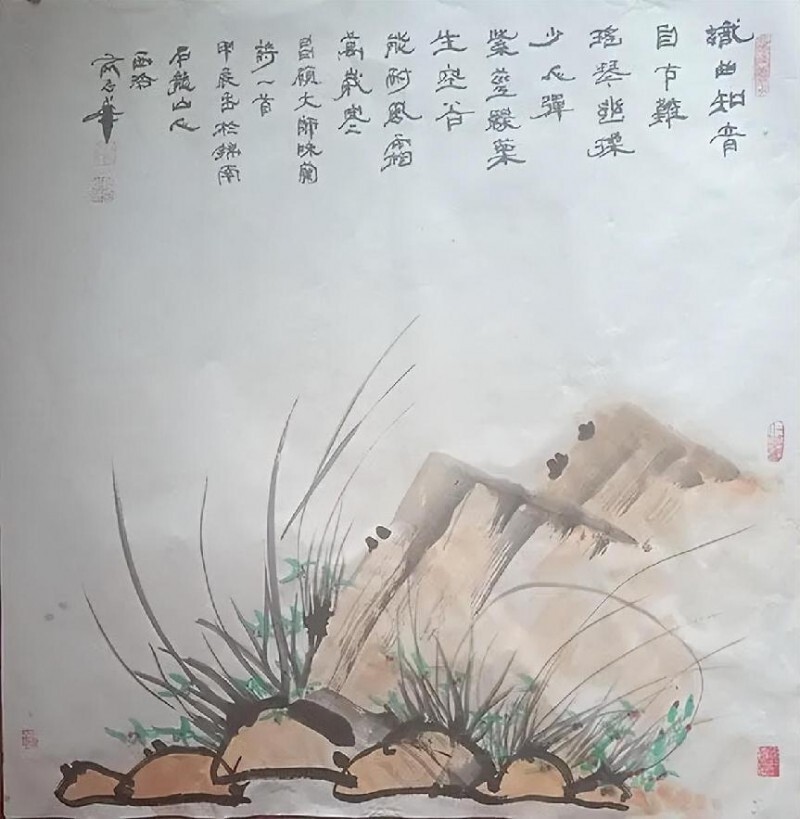 識曲知音
自古難
瑤琴幽操
少人彈
紫莖綠葉
生空谷
能耐風霜
萬歲寒
昌碩大師咏蘭
詩一首
甲辰書於錦南
石龍山人
西洛